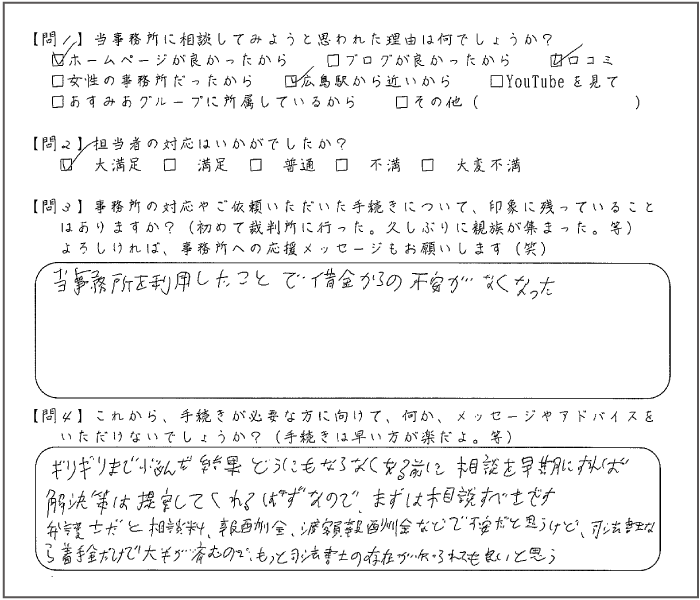 【問1】当事務所に相談してみようと思われた理由は何でしょうか?
☑ホームページが良かったから □ブログが良かったから ☑口コミ
□女性の事務所だったから ☑広島駅から近いから □YouTubeを見て
□あすみあグループに所属しているから □その他( )
【問2】担当者の対応はいかがでしたか?
☑ 大満足 □ 満足 □ 普通 □ 不満 □ 大変不満
【問3】事務所の対応やご依頼いただいた手続きについて、印象に残っていること
はありますか?(初めて裁判所に行った。久しぶりに親族が集まった。等)
よろしければ、事務所への応援メッセージもお願いします(笑)
当事務所を利用したことで借金からの不安がなくなった
【問4】これから、手続きが必要な方に向けて、何か、メッセージやアドバイスを
いただけないでしょうか?(手続きは早い方が楽だよ。等)
ギリギリまでふんだ結果どうにもならなくなる前に相談を早期にすれば
解決策は提案してくれるはずなので、まずは相談すべきです
弁護士だと相談料、報酬金、減額報酬金などで不安だと思うけど、司法書士な
ら着手金だけで大半が済むので、もっと司法書士の存在が知られても良いと思う